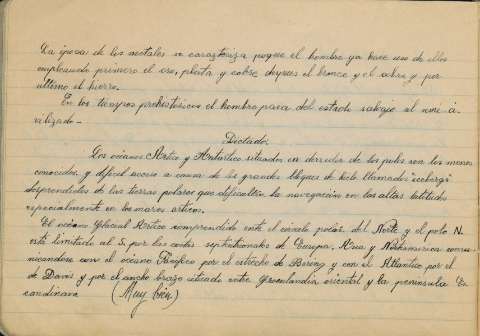 La época de los metales se caracteriza poque el hombre ya hace uso de ellos
empleando primero el oro, plata y cobre depues el bronce y el cobre y por
ultimo el hierro.
En los tiempos prehistoricos el hombre pasa del estado salvaje al semi ci-
vilizado -
Dictado.
Los océanos Artico y Antartico situados en derredor de los polos son los menos
conocidos, y difícil acceso a causa de los grandes bloques de hielo llamados "icebergs"
desprendidos de las tierras polares que dificultan la navegacion en las altas latitudes
especialmente en los mares articos.
El océano Glacial Artico comprendido entre el circulo polar del Norte y el polo N.
está limitado al S. por las costas septentrionales de Europa, Asia y Norteamerica comu-
nicandose con el océano Pacifico por el estrecho de Bering y con el Atlantico por el
de Davis y por el ancho brazo situado entre Groenlandia oriental y la peninsula Es
candinava (Muy bien)